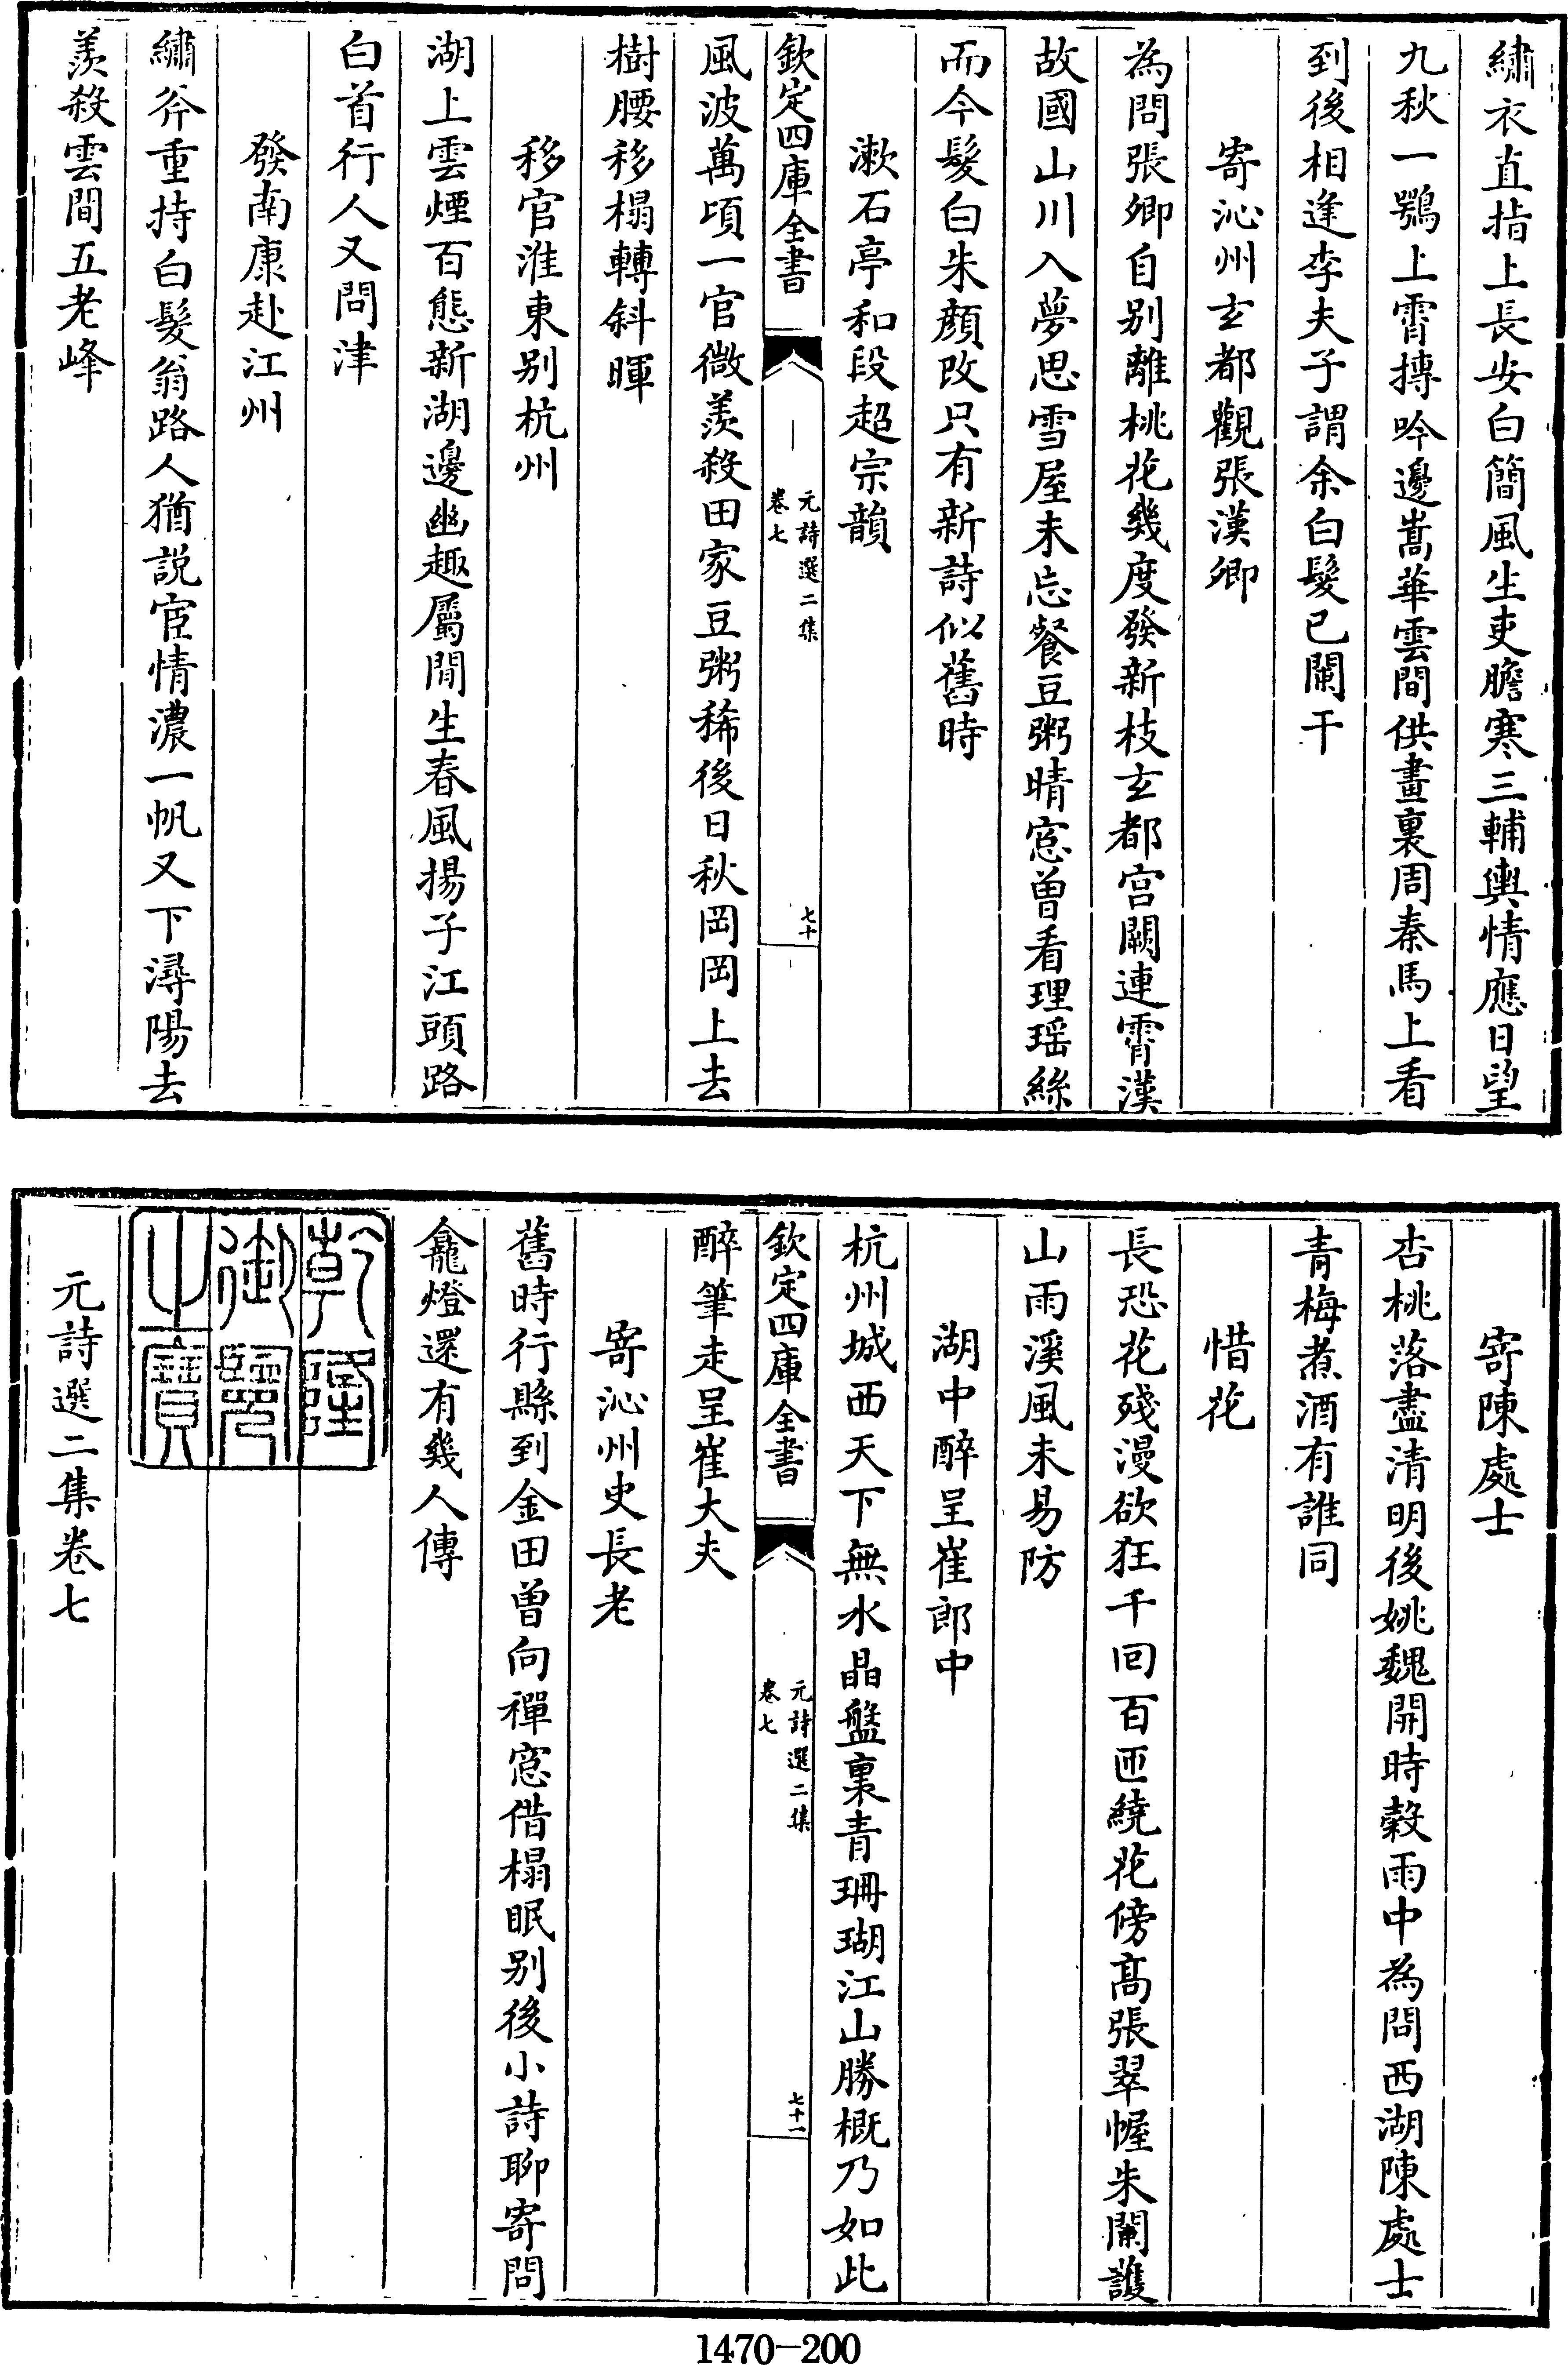 繡衣直指上長安白簡風生吏膽寒三輔輿情應日望
九秋一鶚上霄摶吟邊嵩華雲間供畫裏周秦馬上看
到後相逢李夫子謂余白髮已闌干
寄沁州玄都觀張漢卿
為問張卿自别離桃花幾度發新枝玄都宫闕連霄漢
故國山川入夢思雪屋未忘餐豆粥晴窓曾看理瑶絲
而今髮白朱顔改只有新詩似舊時
漱石亭和段超宗韻
欽定四庫全書
元詩選二集
卷七
七十
風波萬頃一官微羨殺田家豆粥稀後日秋岡岡上去
樹腰移榻轉斜暉
移官淮東别杭州
湖上雲煙百態新湖邊幽趣屬閒生春風揚子江頭路
白首行人又問津
發南康赴江州
繡斧重持白髮翁路人猶説宦情濃一帆又下潯陽去
羨殺雲間五老峰
寄陳處士
杏桃落盡清明後姚魏開時穀雨中為問西湖陳處士
青梅煮酒有誰同
惜花
長恐花殘漫欲狂千回百匝繞花傍髙張翠幄朱闌護
山雨溪風未易防
湖中醉呈崔郎中
杭州城西天下無水晶盤裏青珊瑚江山勝概乃如此
欽定四庫全書
元詩選二集
卷七
七十一
醉筆走呈崔大夫
寄沁州史長老
舊時行縣到金田曾向禪窓借榻眠别後小詩聊寄問
龕燈還有幾人傳
乾隆
御覽
之寶
元詩選二集卷七
1470-200